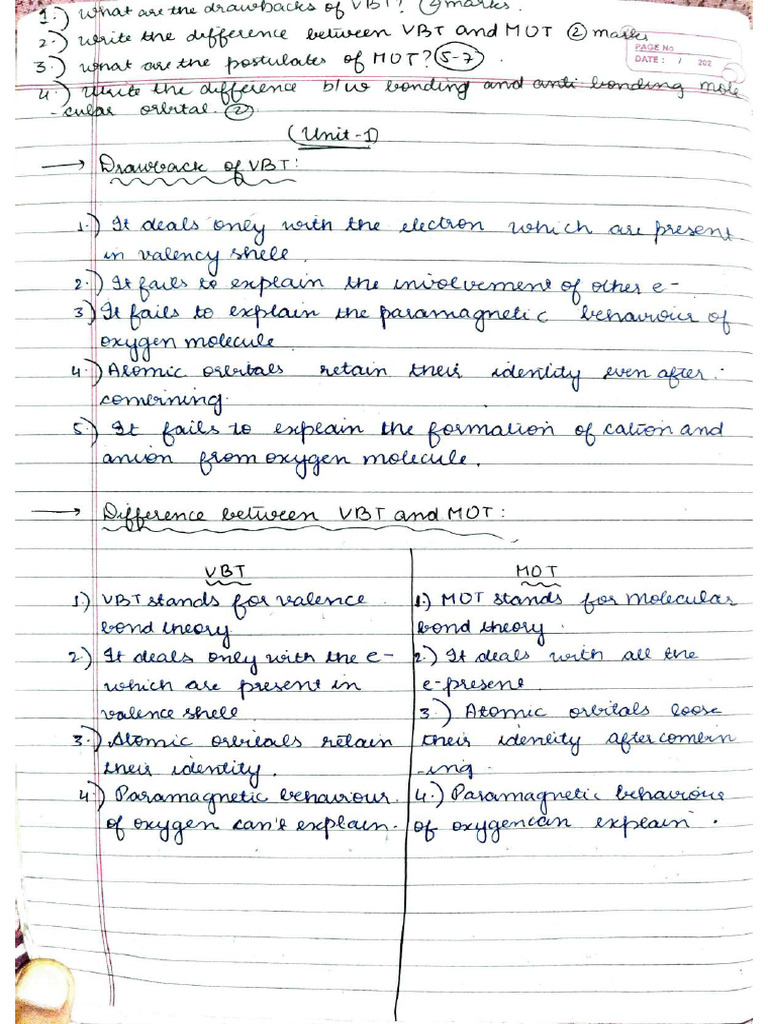 1.) What are the drawbacks of VBT? (2) marks.
2.) Write the difference between VBT and MOT (2) marks
3.) What are the postulates of MOT? (5-7).
4.) Write the difference b/w bonding and anti bonding mole
-cular orbital. (2)
PAGE No
DATE: / 202
(Unit-1)
→ Drawback of VBT:
1.) It deals only with the electron which are present
in valency shell.
2.) It fails to explain the involvement of other e-
3.) It fails to explain the paramagnetic behaviour of
oxygen molecule.
4.) Atomic orbitals retain their identity even after
comerning.
5.) It fails to explain the formation of cation and
anion from oxygen molecule.
→ Difference between VBT and MOT:
VBT
1.) VBT stands for valence
bond theory
2.) It deals only with the e-
which are present in
valence shell.
3.) Atomic orbitals retain
their identity.
4.) Paramagnetic behaviour
of oxygen can't explain.
MOT
1.) MOT stands for molecular
bond theory.
2.) It deals with all the
e-present.
3.) Atomic orbitals loose
their identity after comern
-ing.
4.) Paramagnetic behavious
of oxygen can explain.